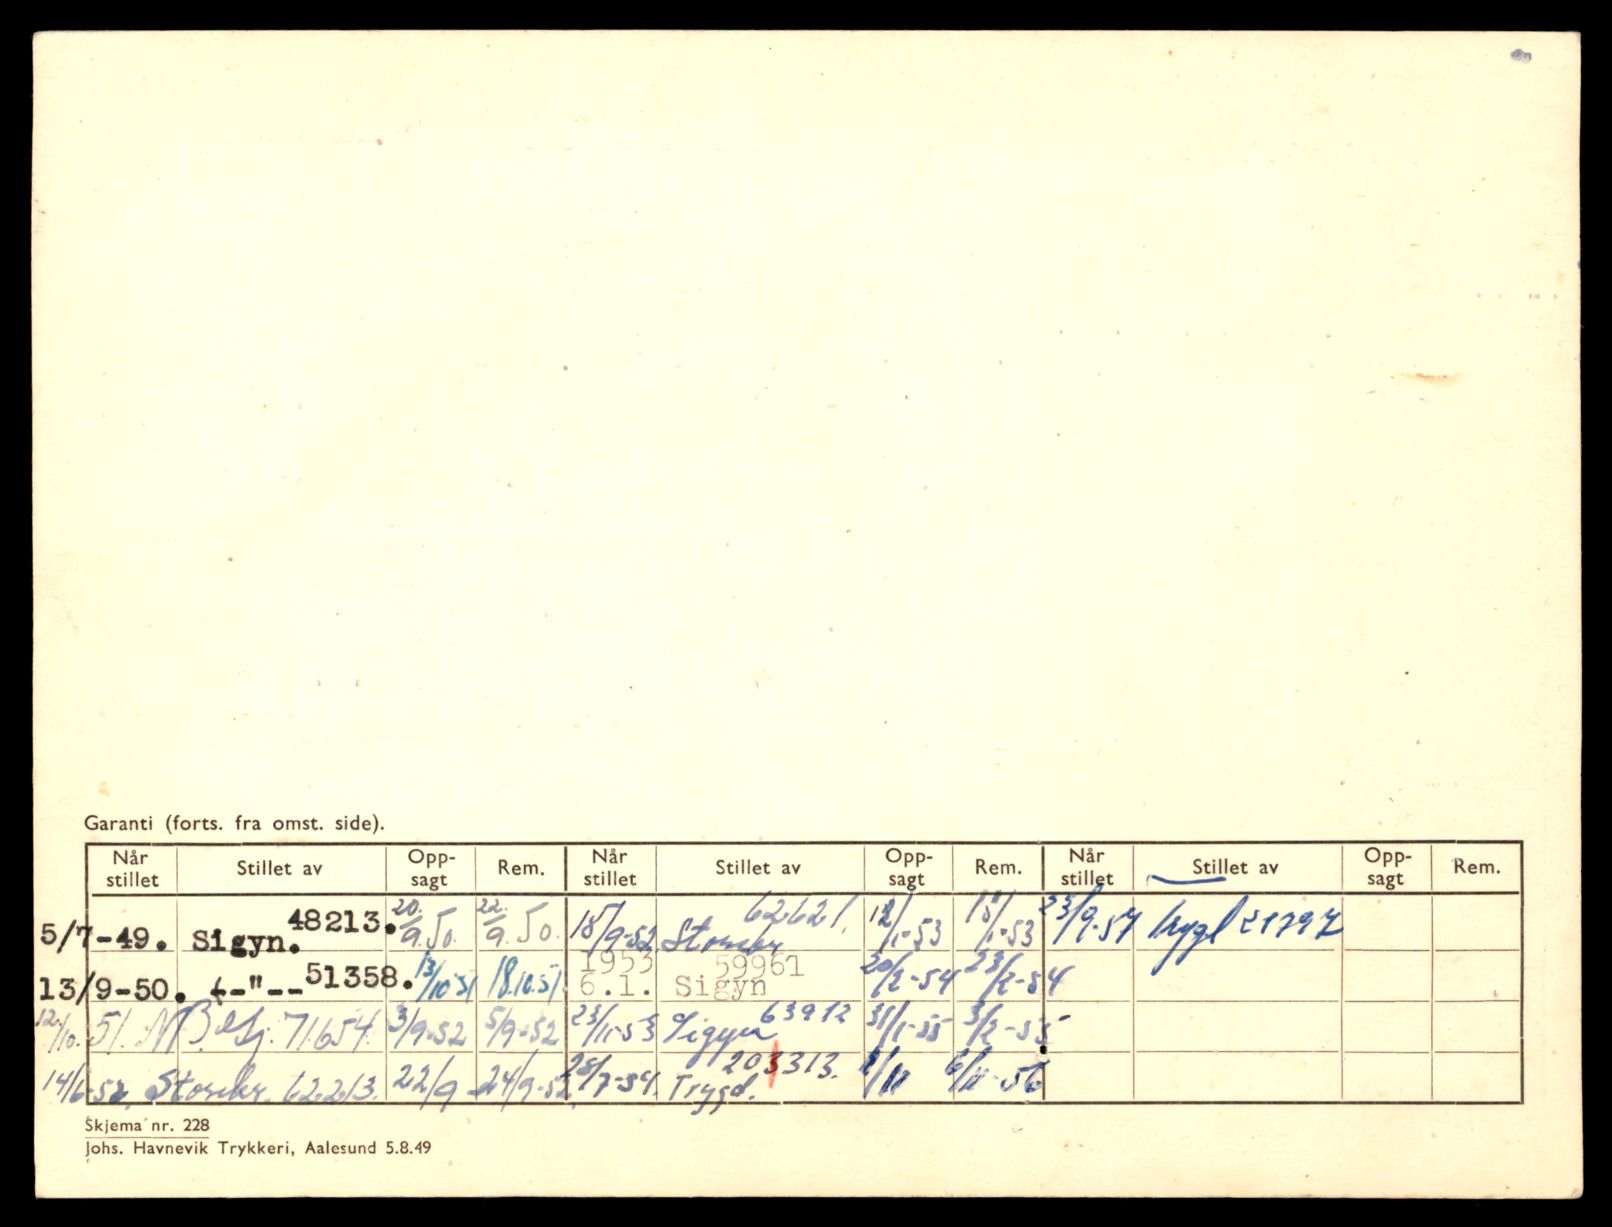 Garanti (forts. fra omst. side).
Når stillet Stillet av Opp-sagt Rem. Når stillet Stillet av Opp-sagt Rem. Når stillet Stillet av Opp-sagt Rem.
5/7-49. Sigyn. 48213. 20./9. 50. 22./9. 50. 15/9-52. Storebr 62621. 12/1-53 15/1-53 23/9-57 Trygd
13/9-50. -"-- 51358. 13/10 51 18.10.51. 1953 6.1. Sigyn 59961 20/2-54 23/2-54
12./10. 51. 71654. 3/9-52 5/9-52 23/11-53 Sigyn 63912 31/1-55 3/2-55
14/6-52. Storebr. 62213. 22/9 24/9-52. 28/7-54. Trygd. 203313. 6/11-56
Skjema nr. 228
Johs. Havnevik Trykkeri, Aalesund 5.8.49